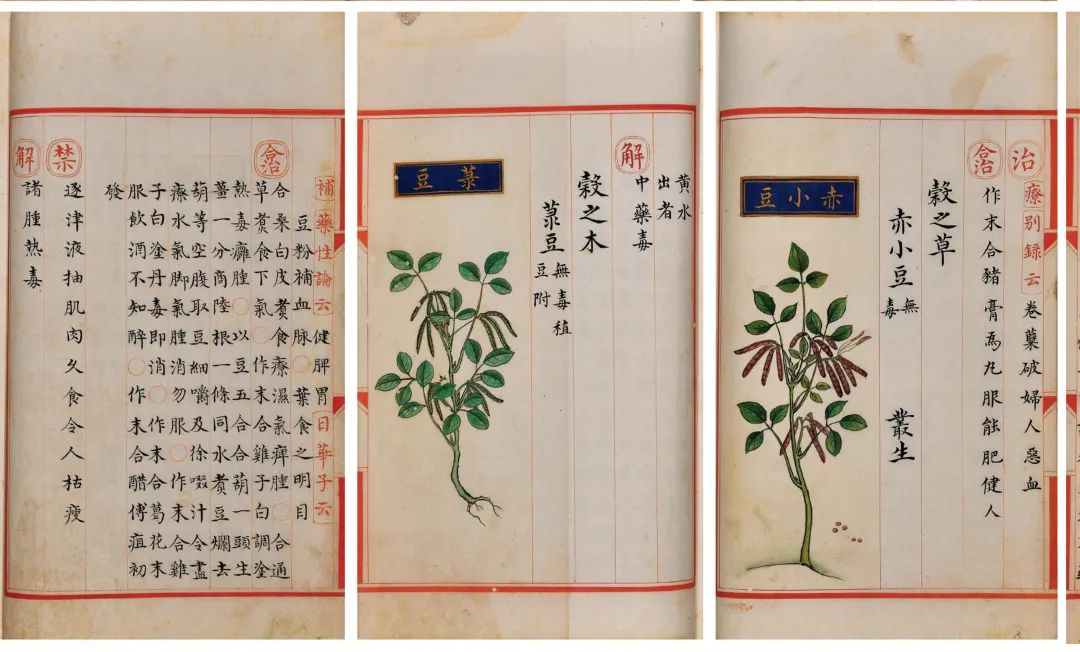 治 療別録云卷蘗破婦人惡血
合治 作末合豬膏為丸服能肥健人
穀之草
赤小豆 無毒 叢生
赤小豆
黄水
出者
解 中藥毒
穀之木
菉豆 無毒 植
豆附
菉豆
補 藥性論云 健脾胃 日華子云
豆粉補血脈○葉食之明目
合治 合桑白皮煑食療濕氣痹腫○合通
草煑食下氣○作末合雞子白調塗
熱毒癰腫○以豆五合合葫一頭生
薑一分商陸根一條同水煑豆爛去
葫等空腹取豆細嚼及徐啜汁令盡
療水氣脚氣腫消勿服○作末合雞
子白塗丹毒即消○作末合葛花末
服飲酒不知醉○作末合醋傅疽初
發
禁 逐津液抽肌肉久食令人枯瘦
解 諸腫熱毒